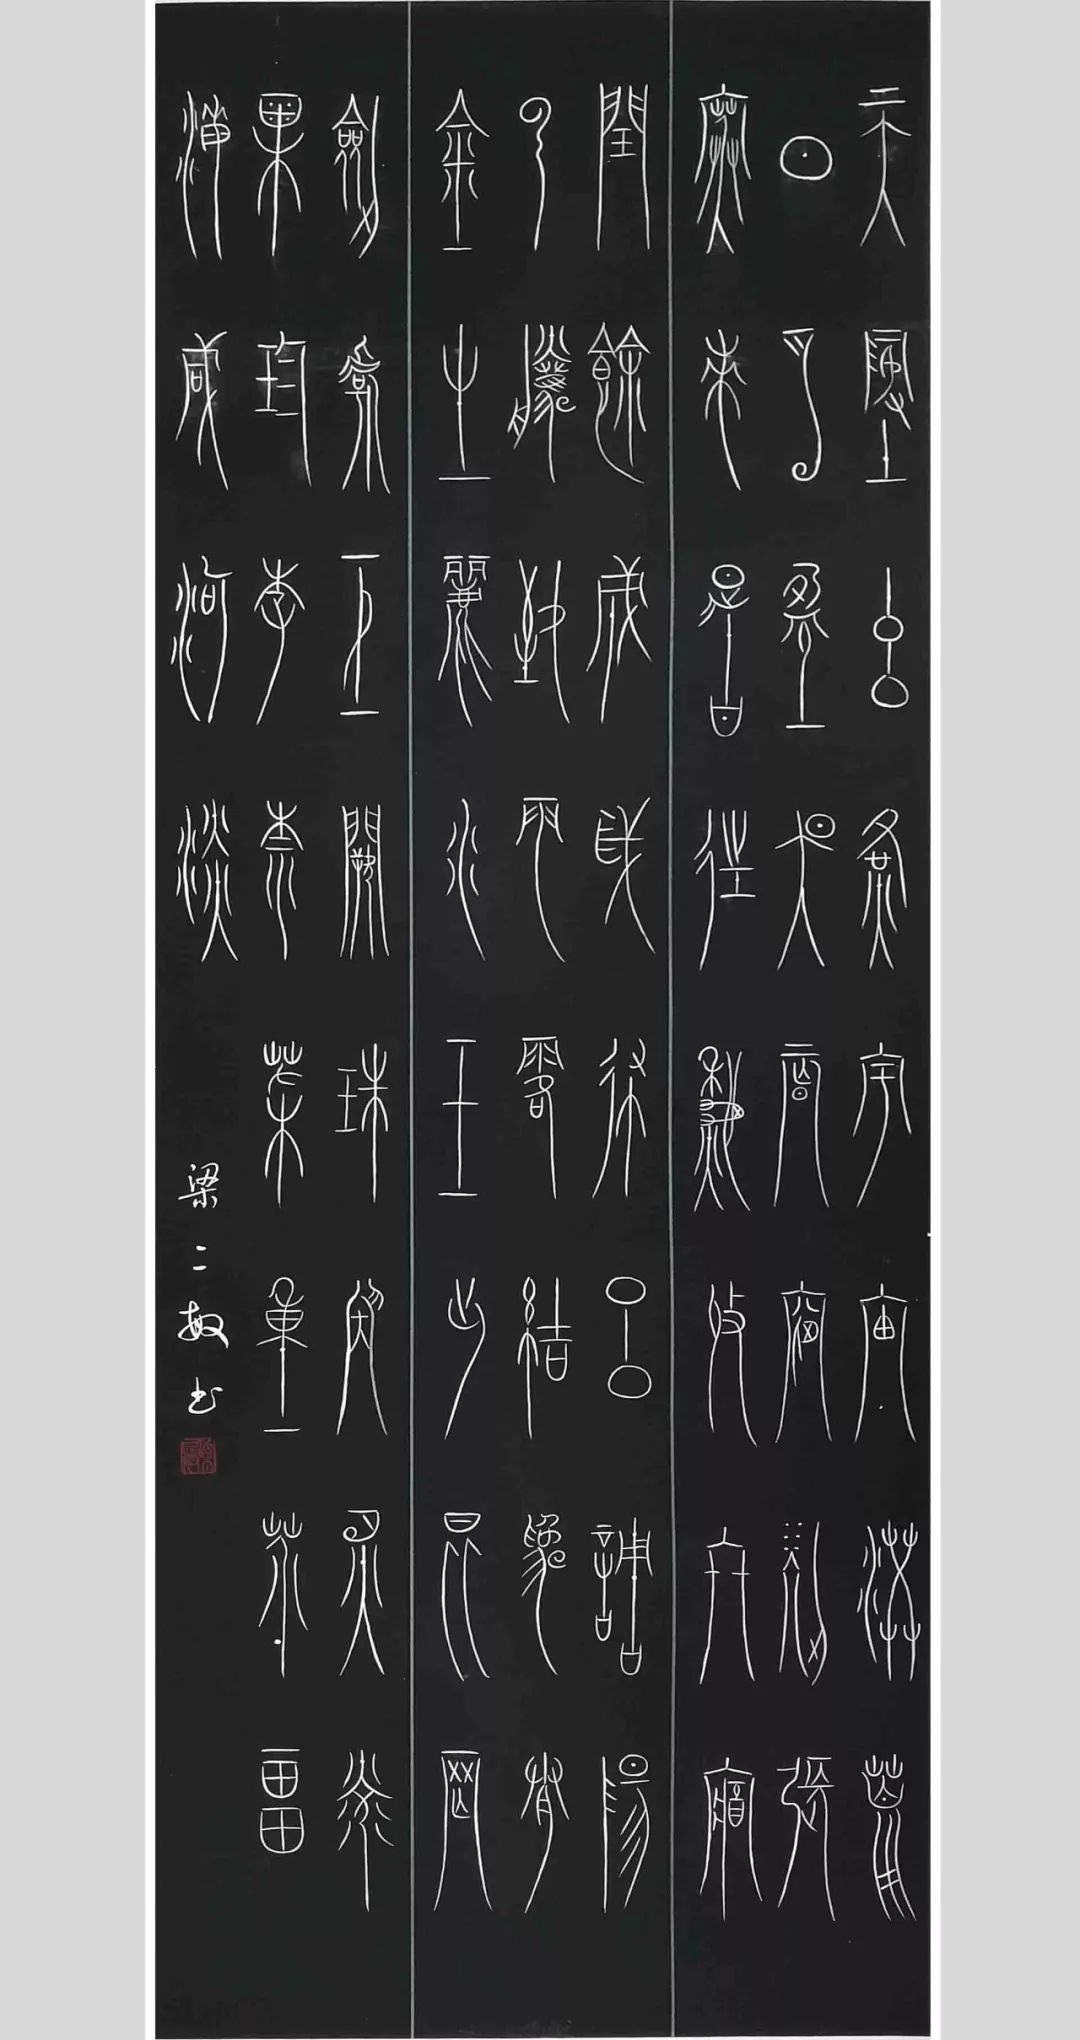 天地玄黃宇宙洪荒
日月盈昃辰宿列張
寒來暑往秋收冬藏
閏餘成歲律呂調陽
雲騰致雨露結為霜
金生麗水玉出崑岡
劍號巨闕珠稱夜光
果珍李柰菜重芥薑
海鹹河淡
梁二敏书